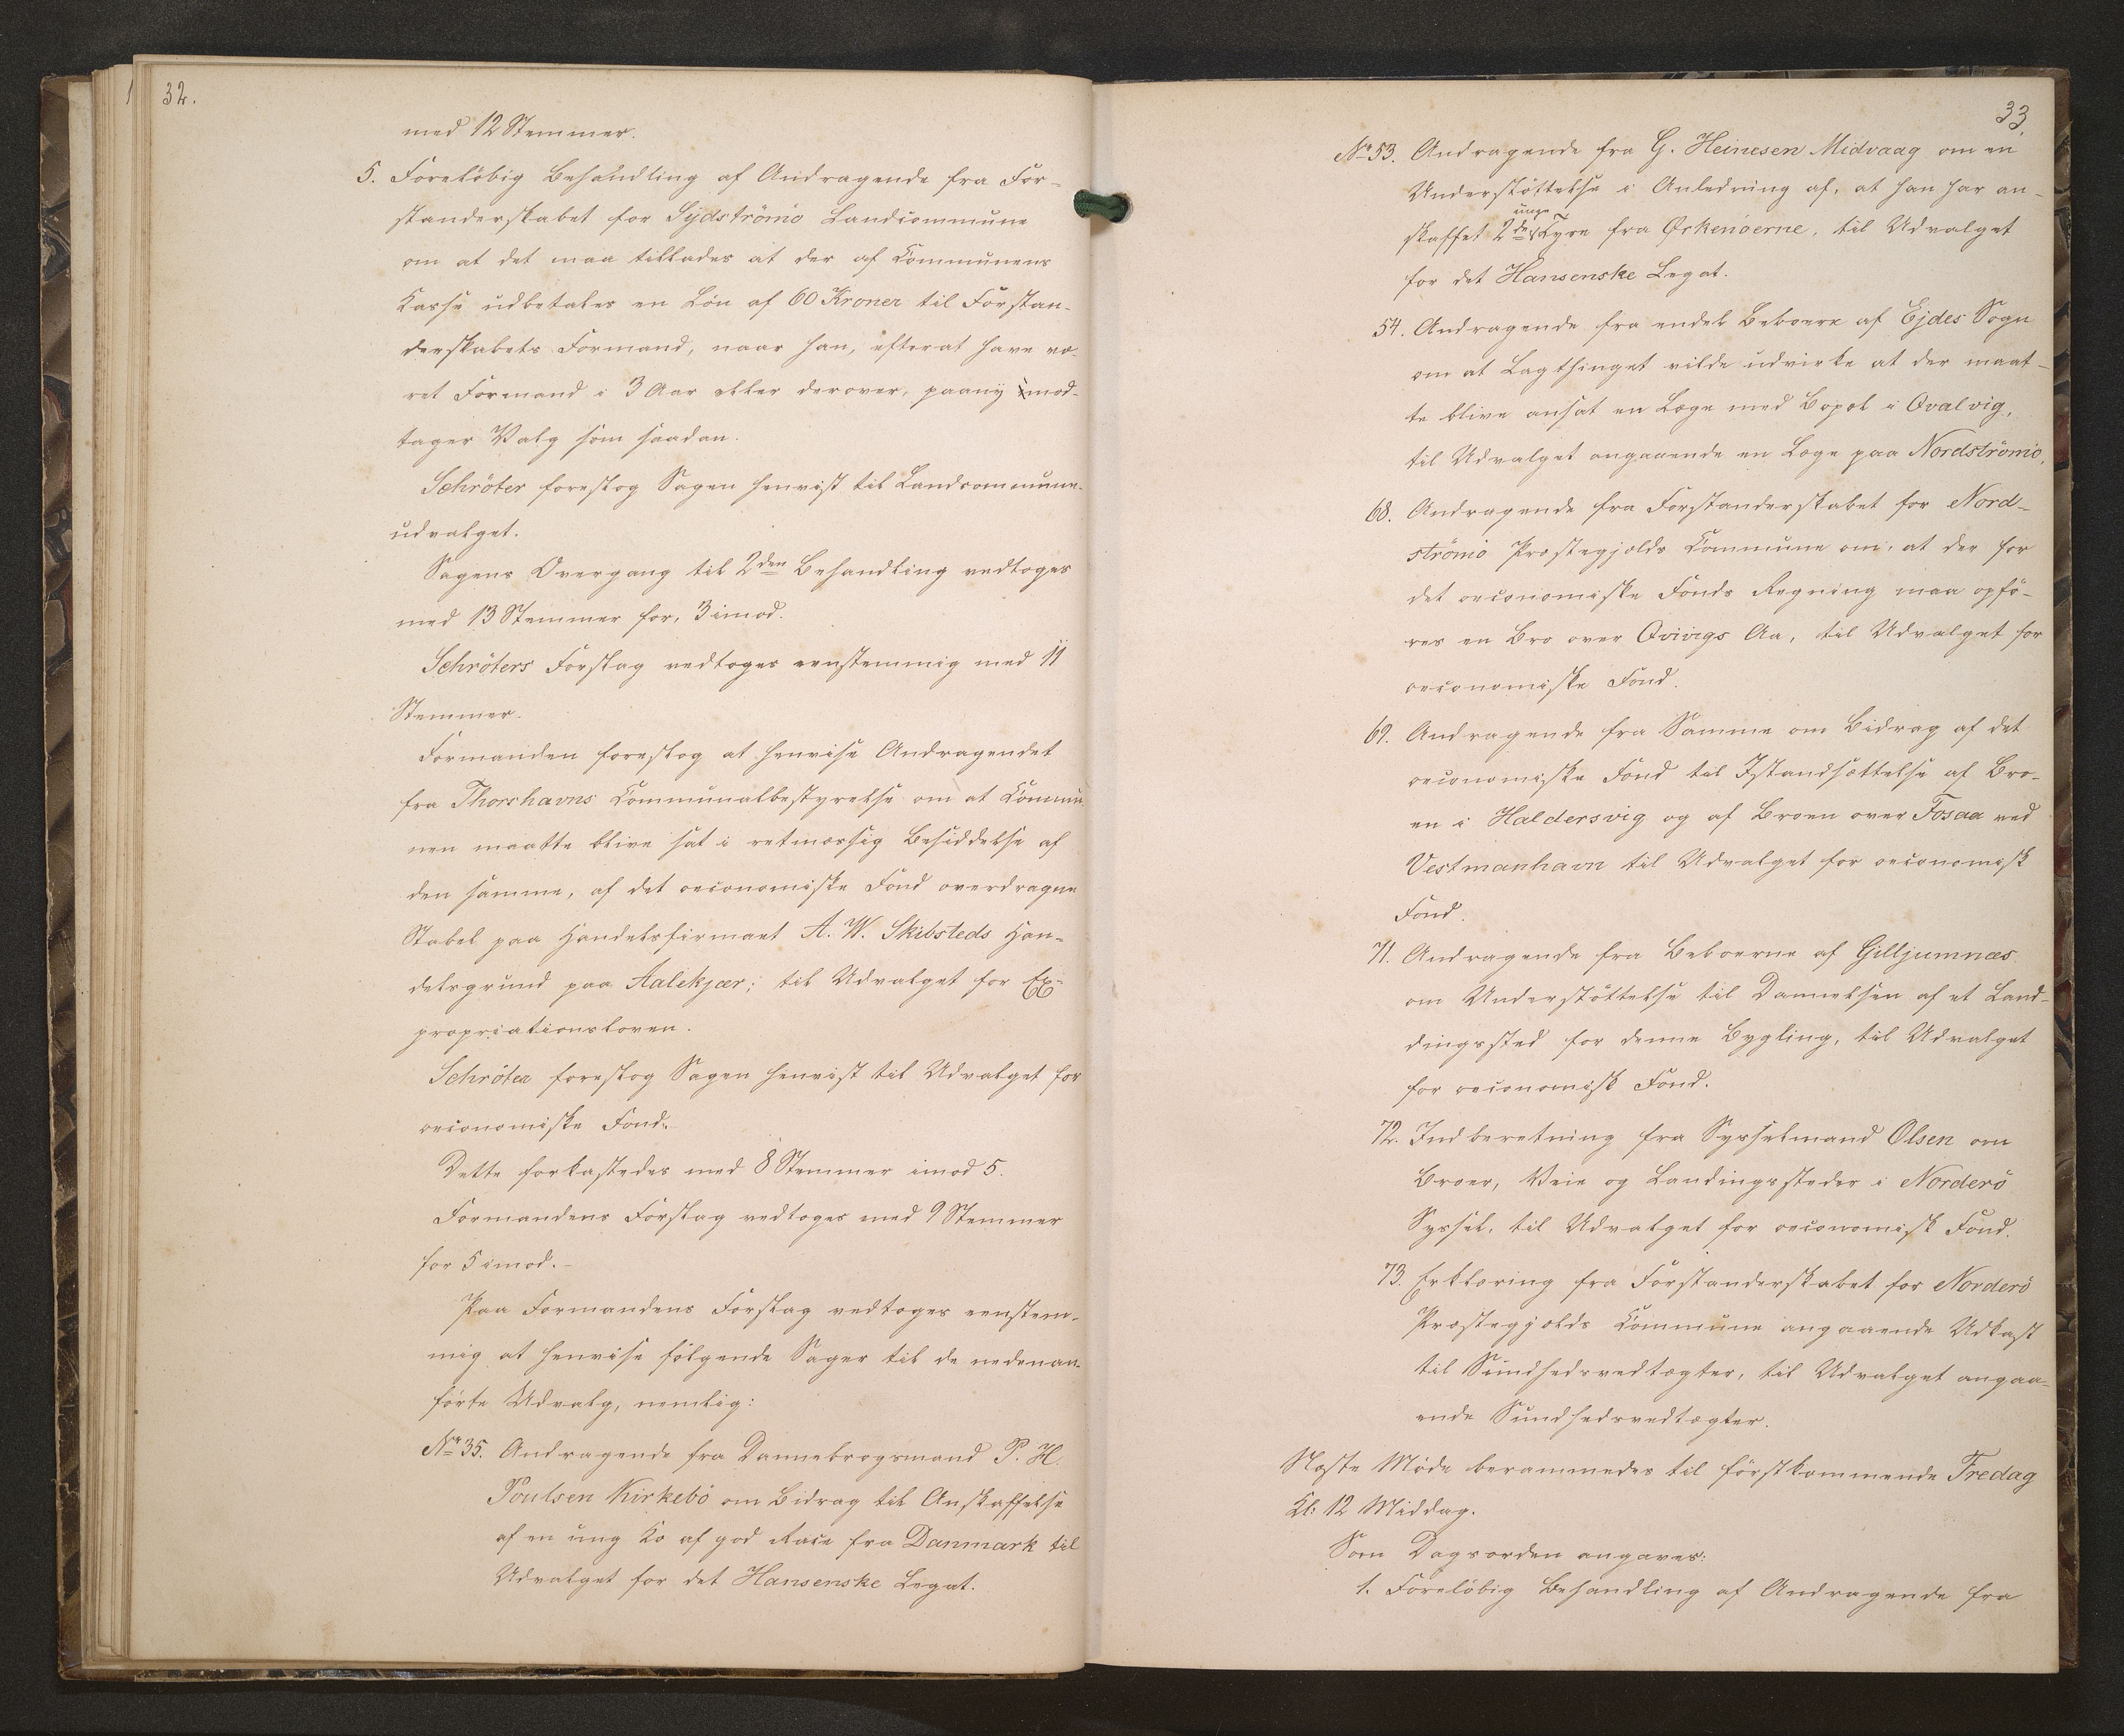 32.
med 12 Stemmer.
5. Foreløbig Behandling af Andragende fra For-
standerskabet for Sydströmö Landcommune
om at det maa tillades at der af Communens
Kasse udbetales en Løn af 60 Kroner til Forstan-
derskabets Formand, naar han, efterat have væ-
ret Formand i 3 Aar eller derover, paany mod-
tager Valg som saadan.
Schröter foreslog Sagen henvist til Landcommune-
udvalget.
Sagens Overgang til 2den Behandling vedtoges
med 13 Stemmer for, 3 imod.
Schröters Forslag vedtoges eenstemmig med 11
Stemmer.
Formanden foreslog at henvise Andragendet
fra Thorshavns Communalbestyrelse om at Commu
nen maatte blive sat i retmæssig Besiddelse af
den samme, af det oeconomiske Fond overdragne
Stabel paa Handelsfirmaet A. W. Skibsteds Han-
delsgrund paa Aalekjær; til Udvalget for Ex-
propriationsloven.
Schröter foreslog Sagen henvist til Udvalget for
oeconomiske Fond.
Dette forkastedes med 8 Stemmer imod 5.
Formandens Forslag vedtoges med 9 Stemmer
for 5 imod. -
Paa Formandens Forslag vedtoges eenstem-
mig at henvise følgende Sager til de nedenan-
førte Udvalg, nemlig:
No 35. Andragende fra Dannebrogsmand P. H.
Poulsen Kirkebö om Bidrag til Anskaffelse
af en ung Ko af god Race fra Danmark til
Udvalget for det Hansenske Legat.
33.
No 53. Andragende fra G. Heinesen Midvaag om en
Understøttelse i Anledning af, at han har an-
skaffet 2de unge Tyre fra Ørkenöerne, til Udvalget
for det Hansenske Legat.
54. Andragende fra endel Beboere af Ejdes Sogn
om at Lagthinget vilde udvirke at der maat-
te blive ansat en Læge med Bopæl i Qvalvig,
til Udvalget angaaende en Læge paa Nordströmö.
68. Andragende fra Forstanderskabet for Nord-
strömö Præstegjelds Commune om, at der for
det oeconomiske Fonds Regning maa opfø-
res en Bro over Qvivigs Aa, til Udvalget for
oeconomiske Fond.
69. Andragende fra Samme om Bidrag af det
oeconomiske Fond til Istandsættelse af Bro-
en i Haldersvig og af Broen over Fosaa ved
Vestmanhavn til Udvalget for oeconomisk
Fond.
71. Andragende fra Beboerne af Gilljumnæs
om Understøttelse til Dannelsen af et Lan-
dingssted for denne Bygling, til Udvalget
for oeconomisk Fond.
72. Indberetning fra Sysselmand Olsen om
Broer, Veie og Landingssteder i Norderö
Syssel, til Udvalget for oeconomisk Fond.
73. Erklæring fra Forstanderskabet for Norderö
Præstegjelds Commune angaaende Udkast
til Sundhedsvedtægter, til Udvalget angaa-
ende Sundhedsvedtægter.
Næste Møde berammedes til førstkommende Fredag
Kl: 12 Middag.
Som Dagsorden angaves:
1. Foreløbig Behandling af Andragende fra